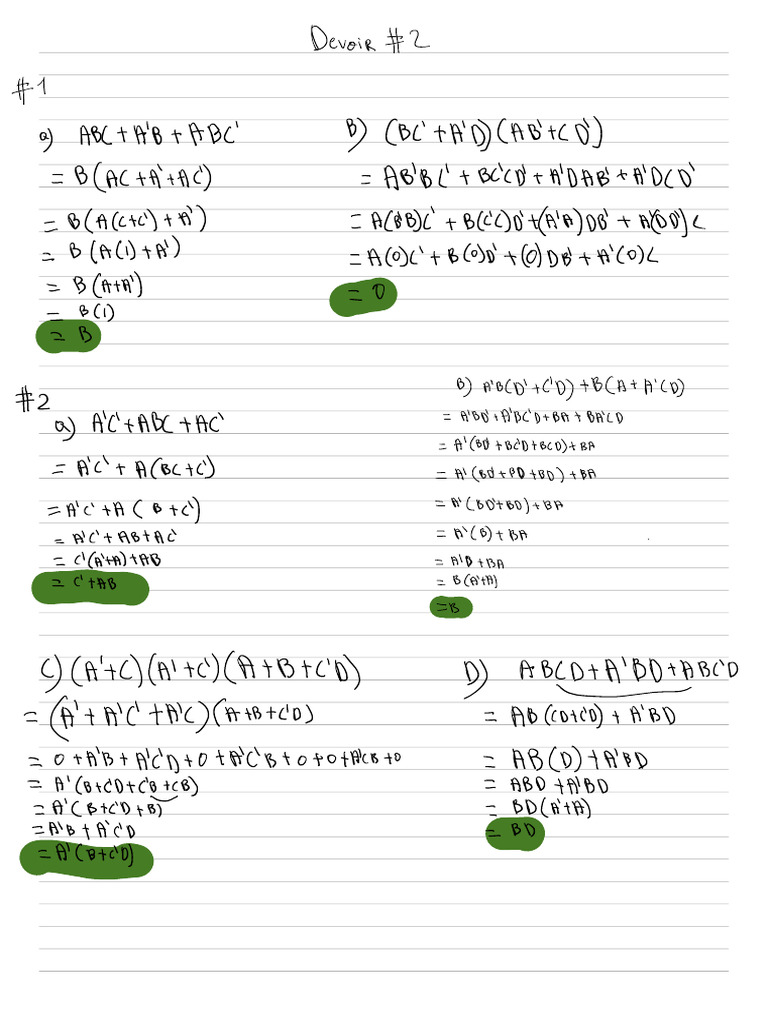 Devoir #2
#1
a) ABC + A'B + ABC'
= B(AC + A' + AC')
= B(A(C+C') + A')
= B(A(1) + A')
= B(A+A')
= B(1)
= B
B) (BC' + A'D)(AB' + CD')
= AB'BC' + BC'CD' + A'DAB' + A'DCD'
= A(B'B)C' + B(C'C)D' + (A'A)DB' + A'(DD')C
= A(0)C' + B(0)D' + (0)DB' + A'(0)C
= 0
#2
a) A'C' + ABC + AC'
= A'C' + A(BC + C')
= A'C' + A(B + C')
= A'C' + AB + AC'
= C'(A'+A) + AB
= C' + AB
B) A'B(D' + C'D) + B(A + A'CD)
= A'BD' + A'BC'D + BA + BA'CD
= A'(BD' + BC'D + BCD) + BA
= A'(BD' + BD + BD) + BA
= A'(BD' + BD) + BA
= A'(B) + BA
= A'B + BA
= B(A'+A)
= B
C) (A'+C)(A'+C')(A+B+C'D)
= (A' + A'C' + A'C)(A+B+C'D)
= 0 + A'B + A'C'D + 0 + A'C'B + 0 + 0 + A'CB + 0
= A'(B + C'D + C'B + CB)
= A'(B + C'D + B)
= A'B + A'C'D
= A'(B + C'D)
D) ABCD + A'BD + ABC'D
= AB(CD + C'D) + A'BD
= AB(D) + A'BD
= ABD + A'BD
= BD(A'+A)
= BD